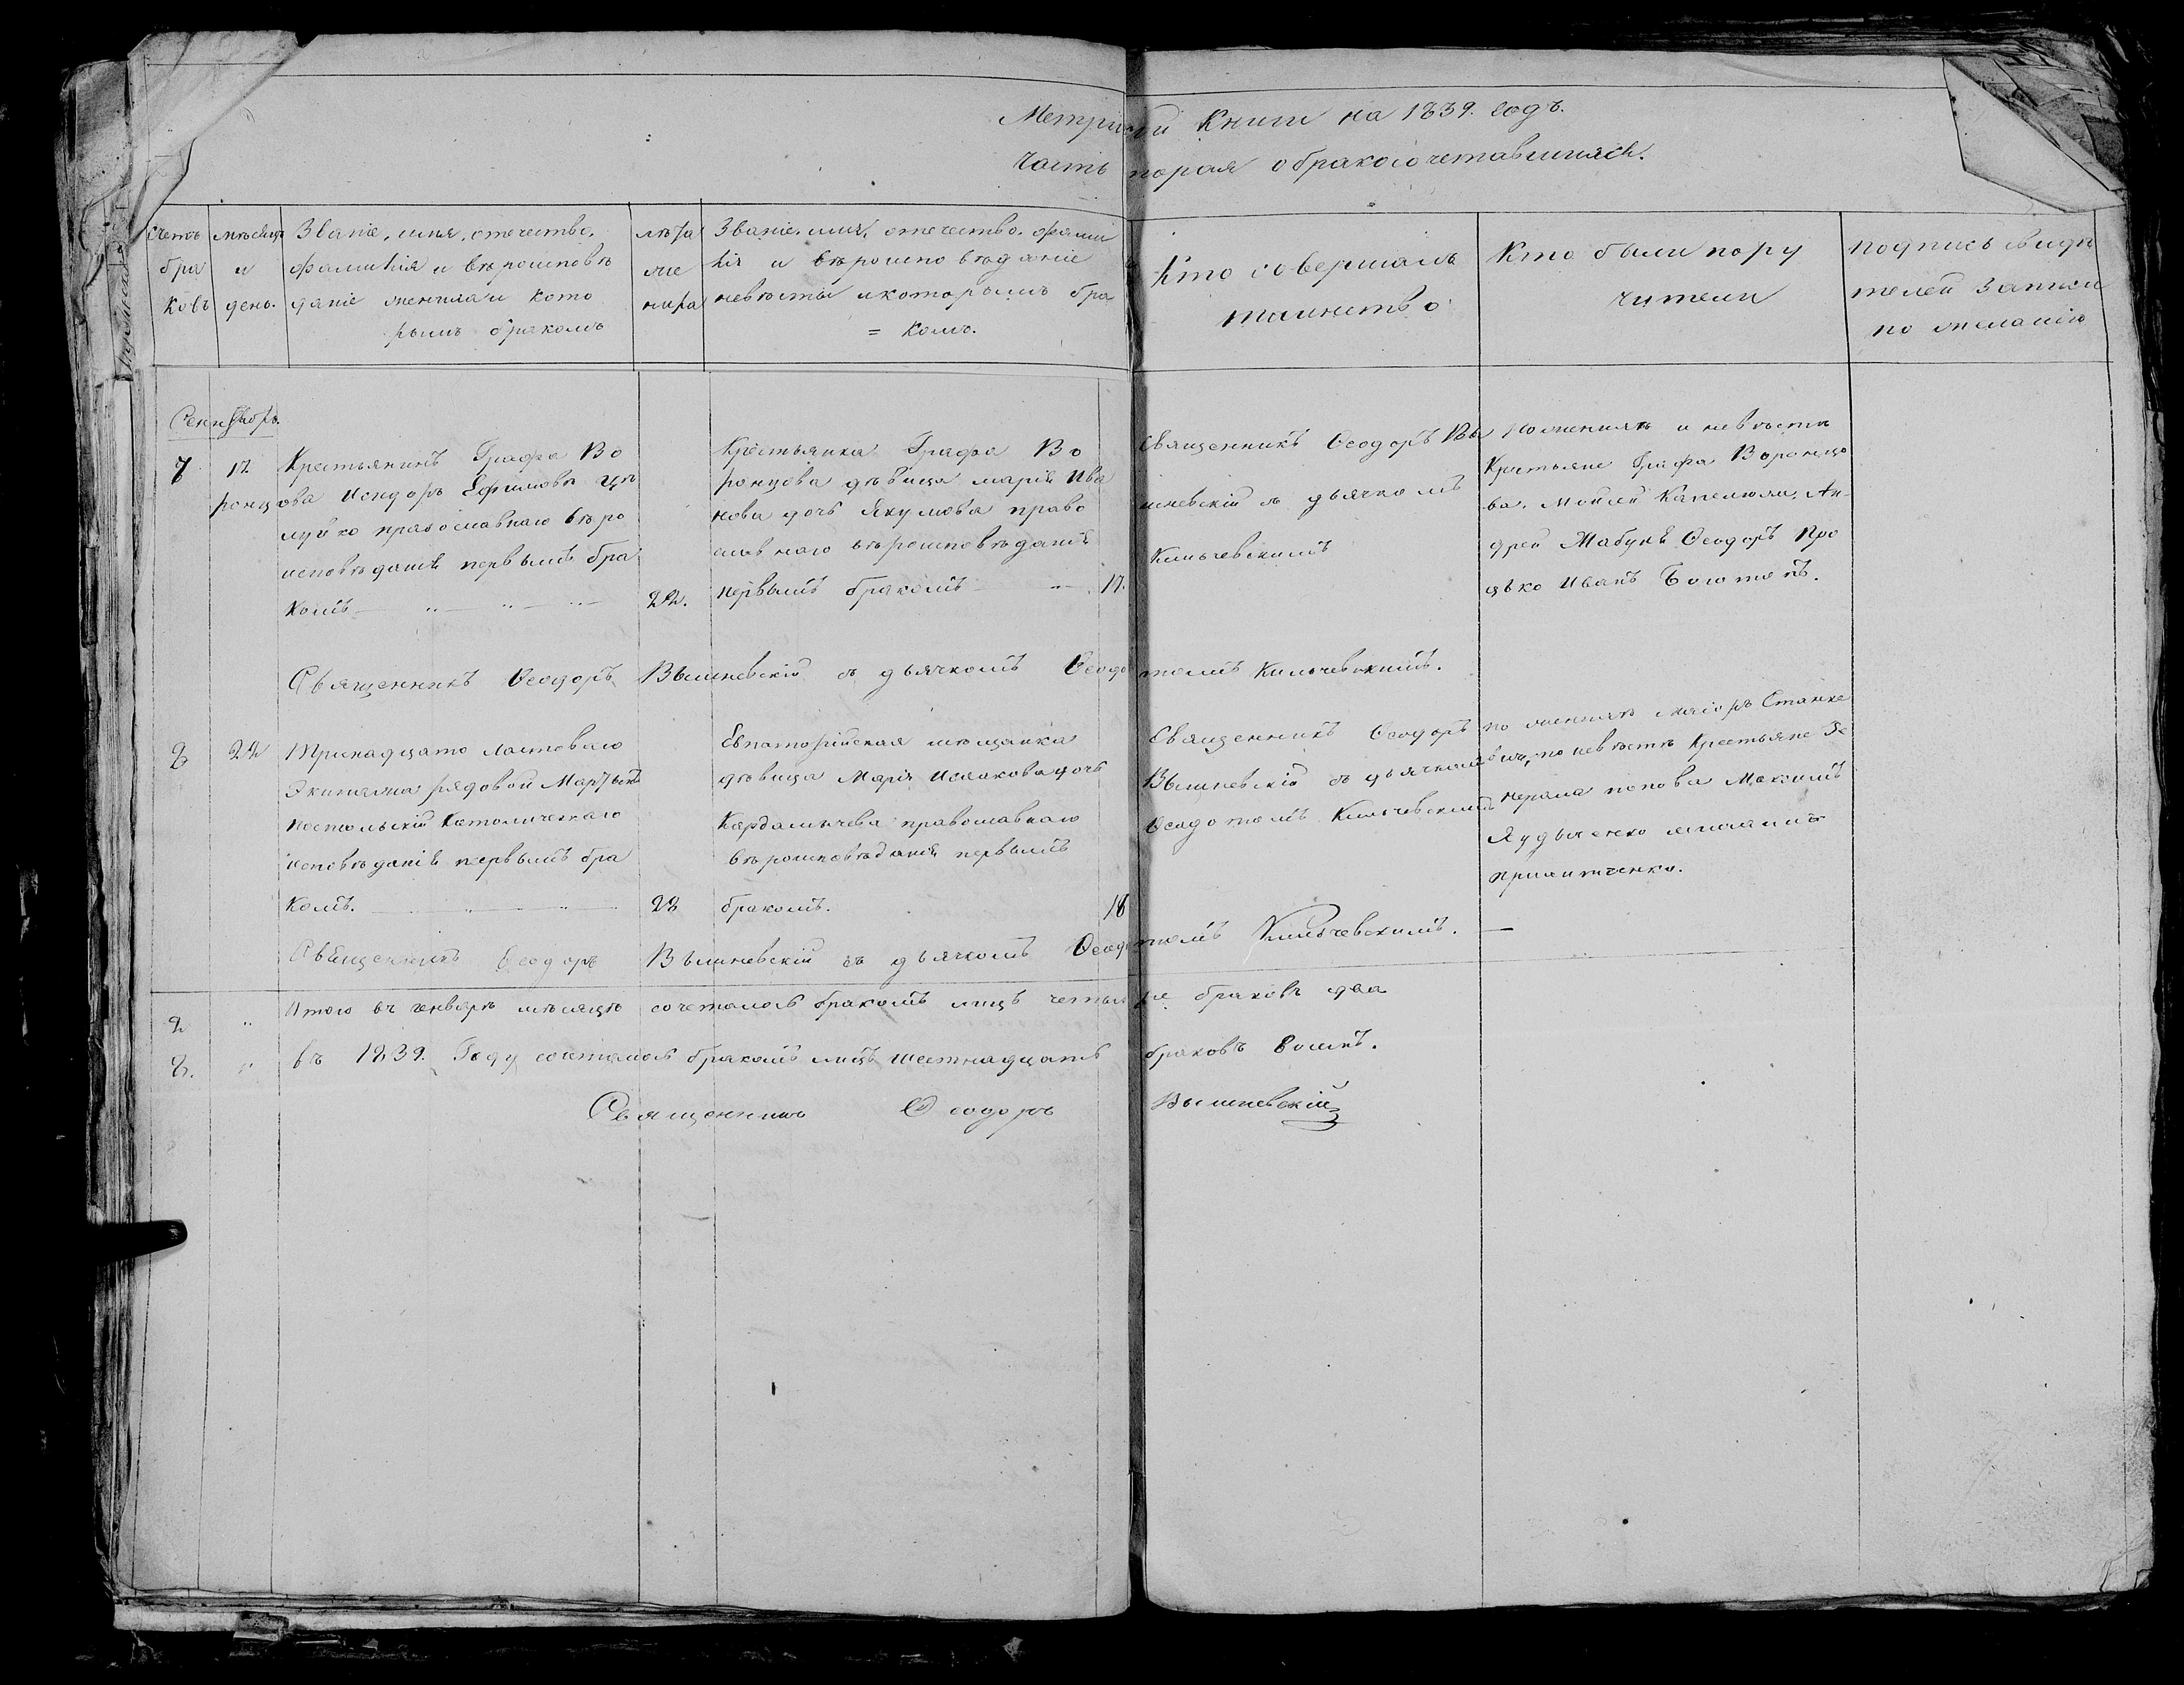 Метри ой Книги на 1839. годъ.
Часть торая о бракосочетавшихся.
Счетъ браковъ
мѣсяцъ и день.
Званіе, имя, отечество, фамилія и вѣроисповѣ
даніе жениха и кото
рымъ бракомъ
лѣта
же
ниха
Званіе, имя, отечество, фами
лія и вѣроисповѣданіе
невѣсты и которымъ бра
= комъ.
Кто совершалъ
таинство
Кто были пору
чители
подпись свидѣ
телей записи
по желанію
7
17
Крестьянинъ Графа Во
ронцова Исидоръ Ефимовъ
луйко православнаго вѣро
исповѣданія первымъ бра
комъ
22.
Крестьянка Графа Во
ронцова дѣвица марія Ива
нова дочь Якумова право
славнаго вѣроисповѣданія
первымъ бракомъ 17.
Священникъ Ѳеодоръ Вы
шневскій съ дьячкомъ
Кильчевскимъ
По женихѣ и невѣстѣ
Крестьяне Графа Воронцо
ва. Моисей Капелюха, Ан-
дрей Ѳеодоръ Про
цько Иванъ
Священникъ Ѳеодоръ Вышневскій съ дьячкомъ Ѳеодо томъ Кильчевскимъ.
8
22
Тринадцато ластоваго
Экипажа рядовой Мартынъ
Католическаго
исповѣданія первымъ бра
комъ.
22
Евпаторійская мѣщанка
дѣвица Марія Исаакова дочь
Кардамычева православнаго
вѣроисповѣданія первымъ
бракомъ. 18
Священникъ Ѳеодоръ
Вышневскій съ дьячкомъ
Ѳеодотомъ Кильчевскимъ
по женихѣ маіоръ Станке
вичъ, по невѣстѣ Крестьяне Ге
нерала попова Максимъ
Священникъ Ѳеодоръ Вышневскій съ дьячкомъ Ѳеодо томъ Кильчевскимъ.
2 " Итого въ генварѣ мѣсяцѣ сочеталось бракомъ лицъ четы ре браковъ два
8. " въ 1839. Году сочеталось бракомъ лицъ шестнадцать браковъ восмь.
Священникъ Ѳеодоръ Вышневскій